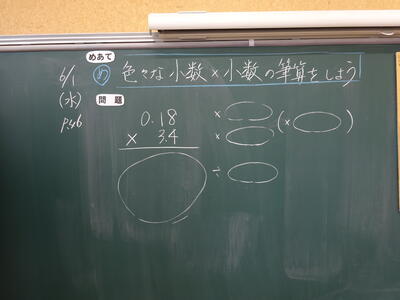 めあて
6/1 め 色々な小数×小数の筆算をしよう
(水) 問題
P.46
0.18 ×
× 3.4 × (× )
÷